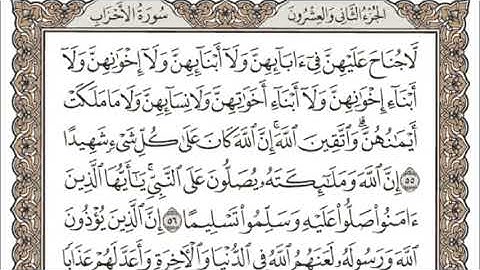 سُورَةُ الأَحْزَابِ الجُزءُ الثَّانِي وَالعِشْرُونَ
لَّا جُنَاحَ عَلَيْهِنَّ فِىٓ ءَابَآئِهِنَّ وَلَآ أَبْنَآئِهِنَّ وَلَآ إِخْوَٰنِهِنَّ وَلَآ
أَبْنَآءِ إِخْوَٰنِهِنَّ وَلَآ أَبْنَآءِ أَخَوَٰتِهِنَّ وَلَا نِسَآئِهِنَّ وَلَا مَا مَلَكَتْ
أَيْمَٰنُهُنَّۗ وَٱتَّقِينَ ٱللَّهَۚ إِنَّ ٱللَّهَ كَانَ عَلَىٰ كُلِّ شَىْءٍ شَهِيدًا
٥٥ إِنَّ ٱللَّهَ وَمَلَٰٓئِكَتَهُۥ يُصَلُّونَ عَلَى ٱلنَّبِىِّۚ يَٰٓأَيُّهَا ٱلَّذِينَ
ءَامَنُوا۟ صَلُّوا۟ عَلَيْهِ وَسَلِّمُوا۟ تَسْلِيمًا ٥٦ إِنَّ ٱلَّذِينَ يُؤْذُونَ
ٱللَّهَ وَرَسُولَهُۥ لَعَنَهُمُ ٱللَّهُ فِى ٱلدُّنْيَا وَٱلْءَاخِرَةِ وَأَعَدَّ لَهُمْ عَذَابًا